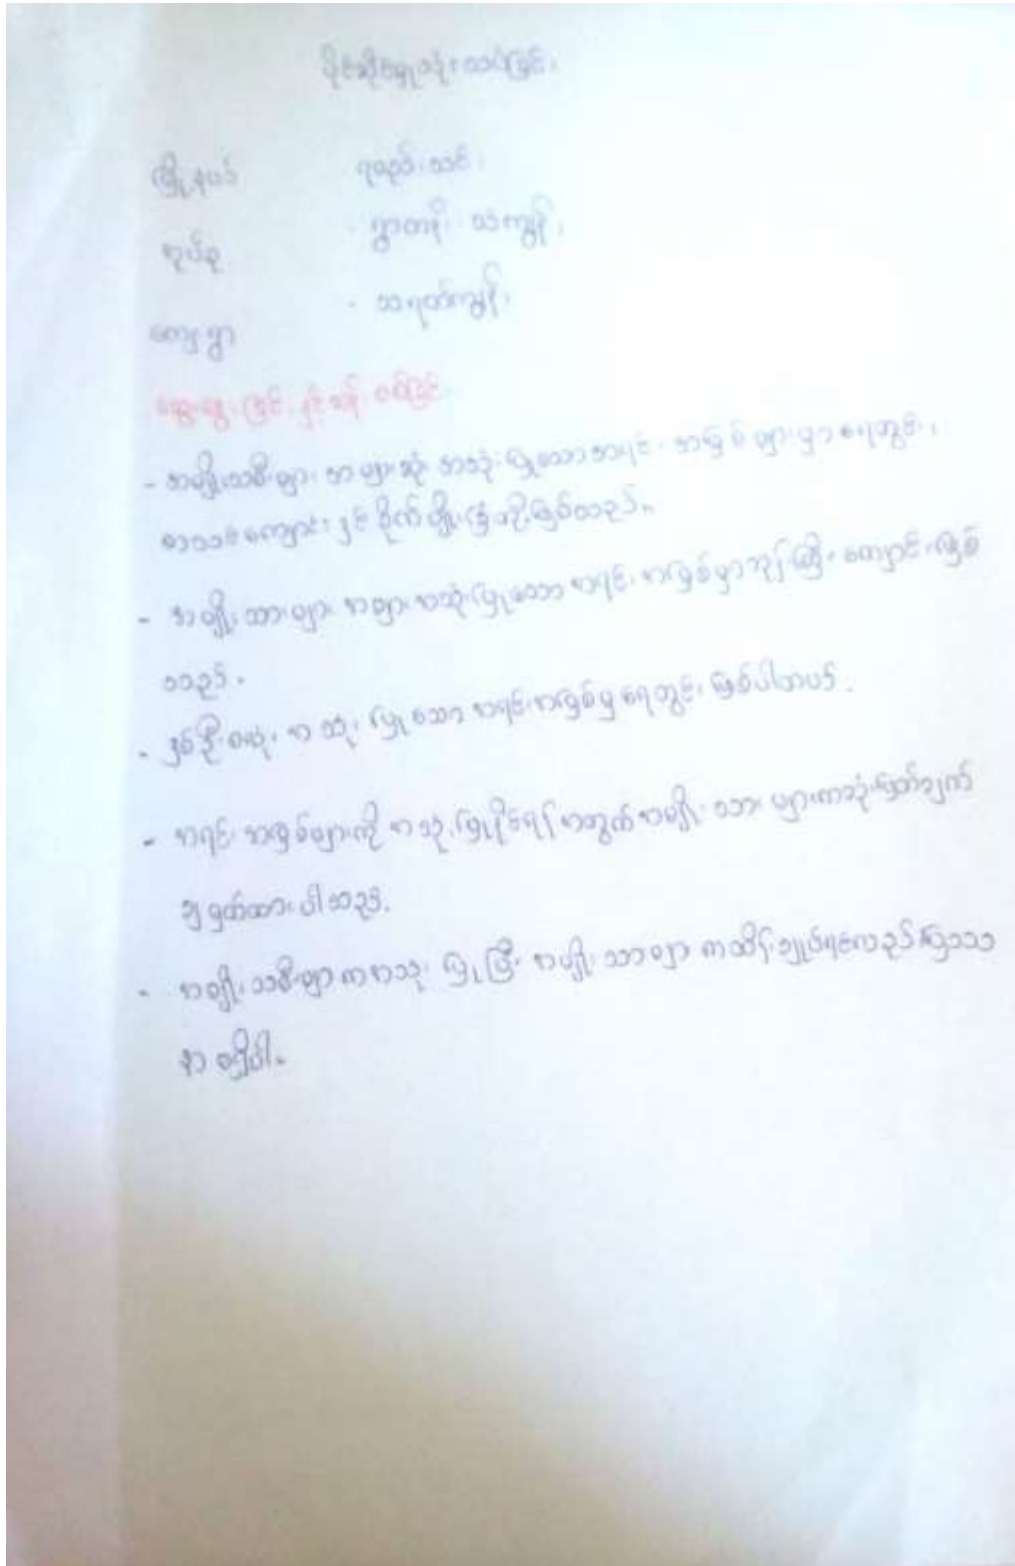 ပိုင်ဆိုင်မှုသုံးသပ်ခြင်း
မြို့နယ် ရမည်းသင်း
အုပ်စု - ရွာတန်း သဲကျွန်း
ကျေးရွာ - သရက်ကျွန်း
ဆွေးနွေးခြင်းနှင့်ဆန်းစစ်ခြင်း
- အမျိုးသမီးများ အများဆုံး အသုံးပြုသောအရင်းအမြစ်များမှာ ရေတွင်း၊
စာသင်ကျောင်းနှင့် စိုက်ပျိုးမြေတို့ဖြစ်သည်။
- အမျိုးသားများ အများ အသုံးပြုသော အရင်းအမြစ်မှာ ဘုန်းကြီးကျောင်းဖြစ်
သည်။
- နှစ်ဦးစလုံး အသုံးပြုသော အရင်းအမြစ်မှ ရေတွင်းဖြစ်ပါတယ်။
- အရင်းအမြစ်များကို အသုံးပြုနိုင်ရန်အတွက် အမျိုးသားများကဆုံးဖြတ်ချက်
ချမှတ်ထားပါသည်။
- အမျိုးသမီးများကအသုံးပြုပြီး အမျိုးသားများ ကထိန်းချုပ်ရင်လည်းပြဿ
နာ မရှိပါ။